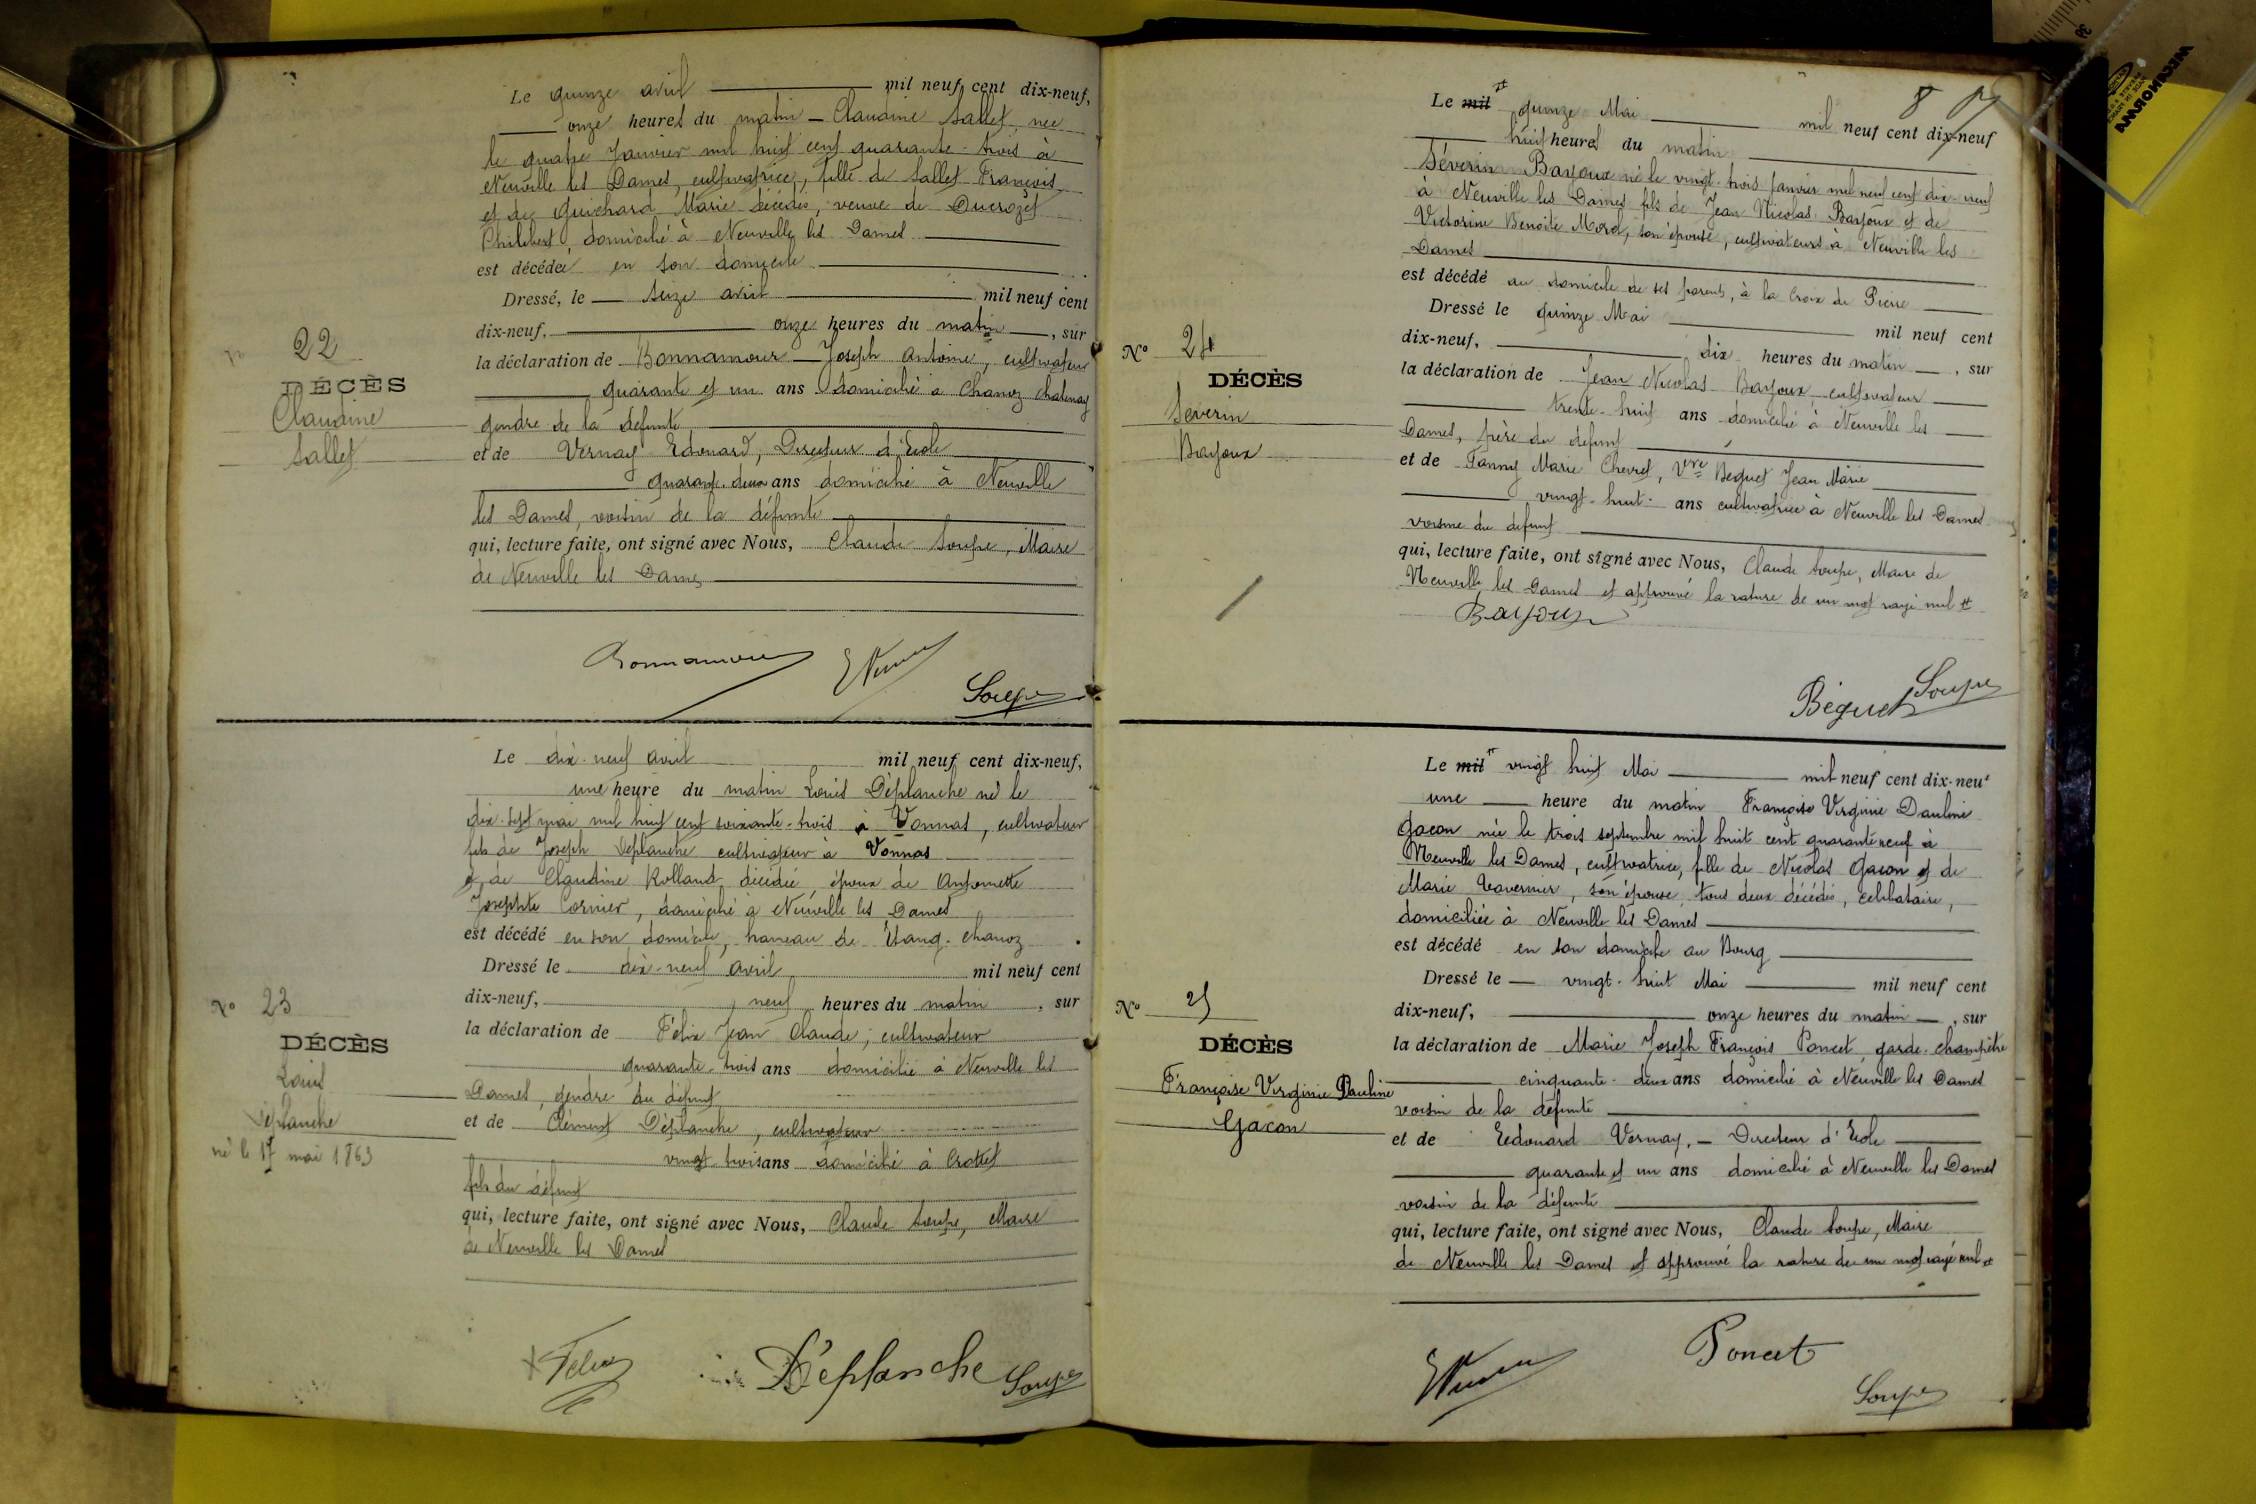 Le quinze avril mil neuf cent dix-neuf,
onze heures du matin – Claudine Sallet née
le quatre Janvier mil huit cent quarante-trois à
Neuville les Dames, cultivatrice, fille de Sallet François
et de Guichard Marie décédés, veuve de Ducrozet
Philibert, domicilié à Neuville les Dames
est décédée en son domicile
Dressé, le seize avril mil neuf cent
dix-neuf, onze heures du matin, sur
la déclaration de Bonnamour Joseph Antoine, cultivateur
quarante et un ans domicilié à Chanoz Chatenay
gendre de la défunte
et de Vernay Edouard, Directeur d'Ecole
quarante-deux ans domicilié à Neuville
les Dames, voisin de la défunte
qui, lecture faite, ont signé avec Nous, Claude Soupe, Maire
de Neuville les Dames
22
DÉCÈS
Claudine
Sallet
Bonnamour
Soupe
Le dix-neuf avril mil neuf cent dix-neuf,
une heure du matin Louis Déplanche né le
dix-sept mai mil huit cent soixante-trois à Vonnas, cultivateur
fils de Joseph Déplanche cultivateur à Vonnas
et de Claudine Rolland décédée, époux de Antoinette
Josephte Cornier, domicilié à Neuville les Dames
est décédé en son domicile, hameau de l'Etang-Chanoz
Dressé le dix-neuf avril mil neuf cent
dix-neuf, neuf heures du matin, sur
la déclaration de Félix Jean Claude, cultivateur
quarante-trois ans domicilié à Neuville les
Dames, gendre du défunt
et de Clément Déplanche, cultivateur
vingt-trois ans domicilié à Crottet
fils du défunt
qui, lecture faite, ont signé avec Nous, Claude Soupe, Maire
de Neuville les Dames
N° 23
DÉCÈS
Louis
Déplanche
né le 17 mai 1863
Félix
Déplanche
Soupe
8
Le mil # quinze Mai mil neuf cent dix-neuf
huit heures du matin
Séverin Bayoux né le vingt-trois Janvier mil neuf cent dix-neuf
à Neuville les Dames fils de Jean Nicolas Bayoux et de
Victorine Benoite Morel, son épouse, cultivateurs à Neuville les
Dames
est décédé au domicile de ses parents, à la Croix de Pierre
Dressé le quinze Mai mil neuf cent
dix-neuf, dix heures du matin, sur
la déclaration de Jean Nicolas Bayoux, cultivateur
trente-huit ans domicilié à Neuville les
Dames, père du défunt
et de Fanny Marie Chevret, Vve Béguet Jean Marie
vingt-huit ans cultivatrice à Neuville les Dames
voisine du défunt
qui, lecture faite, ont signé avec Nous, Claude Soupe, Maire de
Neuville les Dames et approuvé la rature de un mot rayé nul #
N° 24
DÉCÈS
Séverin
Bayoux
Bayoux
Béguet
Soupe
Le mil # vingt huit Mai mil neuf cent dix-neuf
une heure du matin Françoise Virginie Pauline
Gacon née le trois septembre mil huit cent quarante neuf à
Neuville les Dames, cultivatrice, fille de Nicolas Gacon et de
Marie Tavernier, son épouse, tous deux décédés, célibataire,
domiciliée à Neuville les Dames
est décédé en son domicile au Bourg
Dressé le vingt-huit Mai mil neuf cent
dix-neuf, onze heures du matin, sur
la déclaration de Marie Joseph François Poncet, garde-champêtre
cinquante-deux ans domicilié à Neuville les Dames
voisin de la défunte
et de Edouard Vernay, – Directeur d'Ecole
quarante et un ans domicilié à Neuville les Dames
voisin de la défunte
qui, lecture faite, ont signé avec Nous, Claude Soupe, Maire
de Neuville les Dames et approuvé la rature de un mot rayé nul #
N° 25
DÉCÈS
Françoise Virginie Pauline
Gacon
Poncet
Soupe